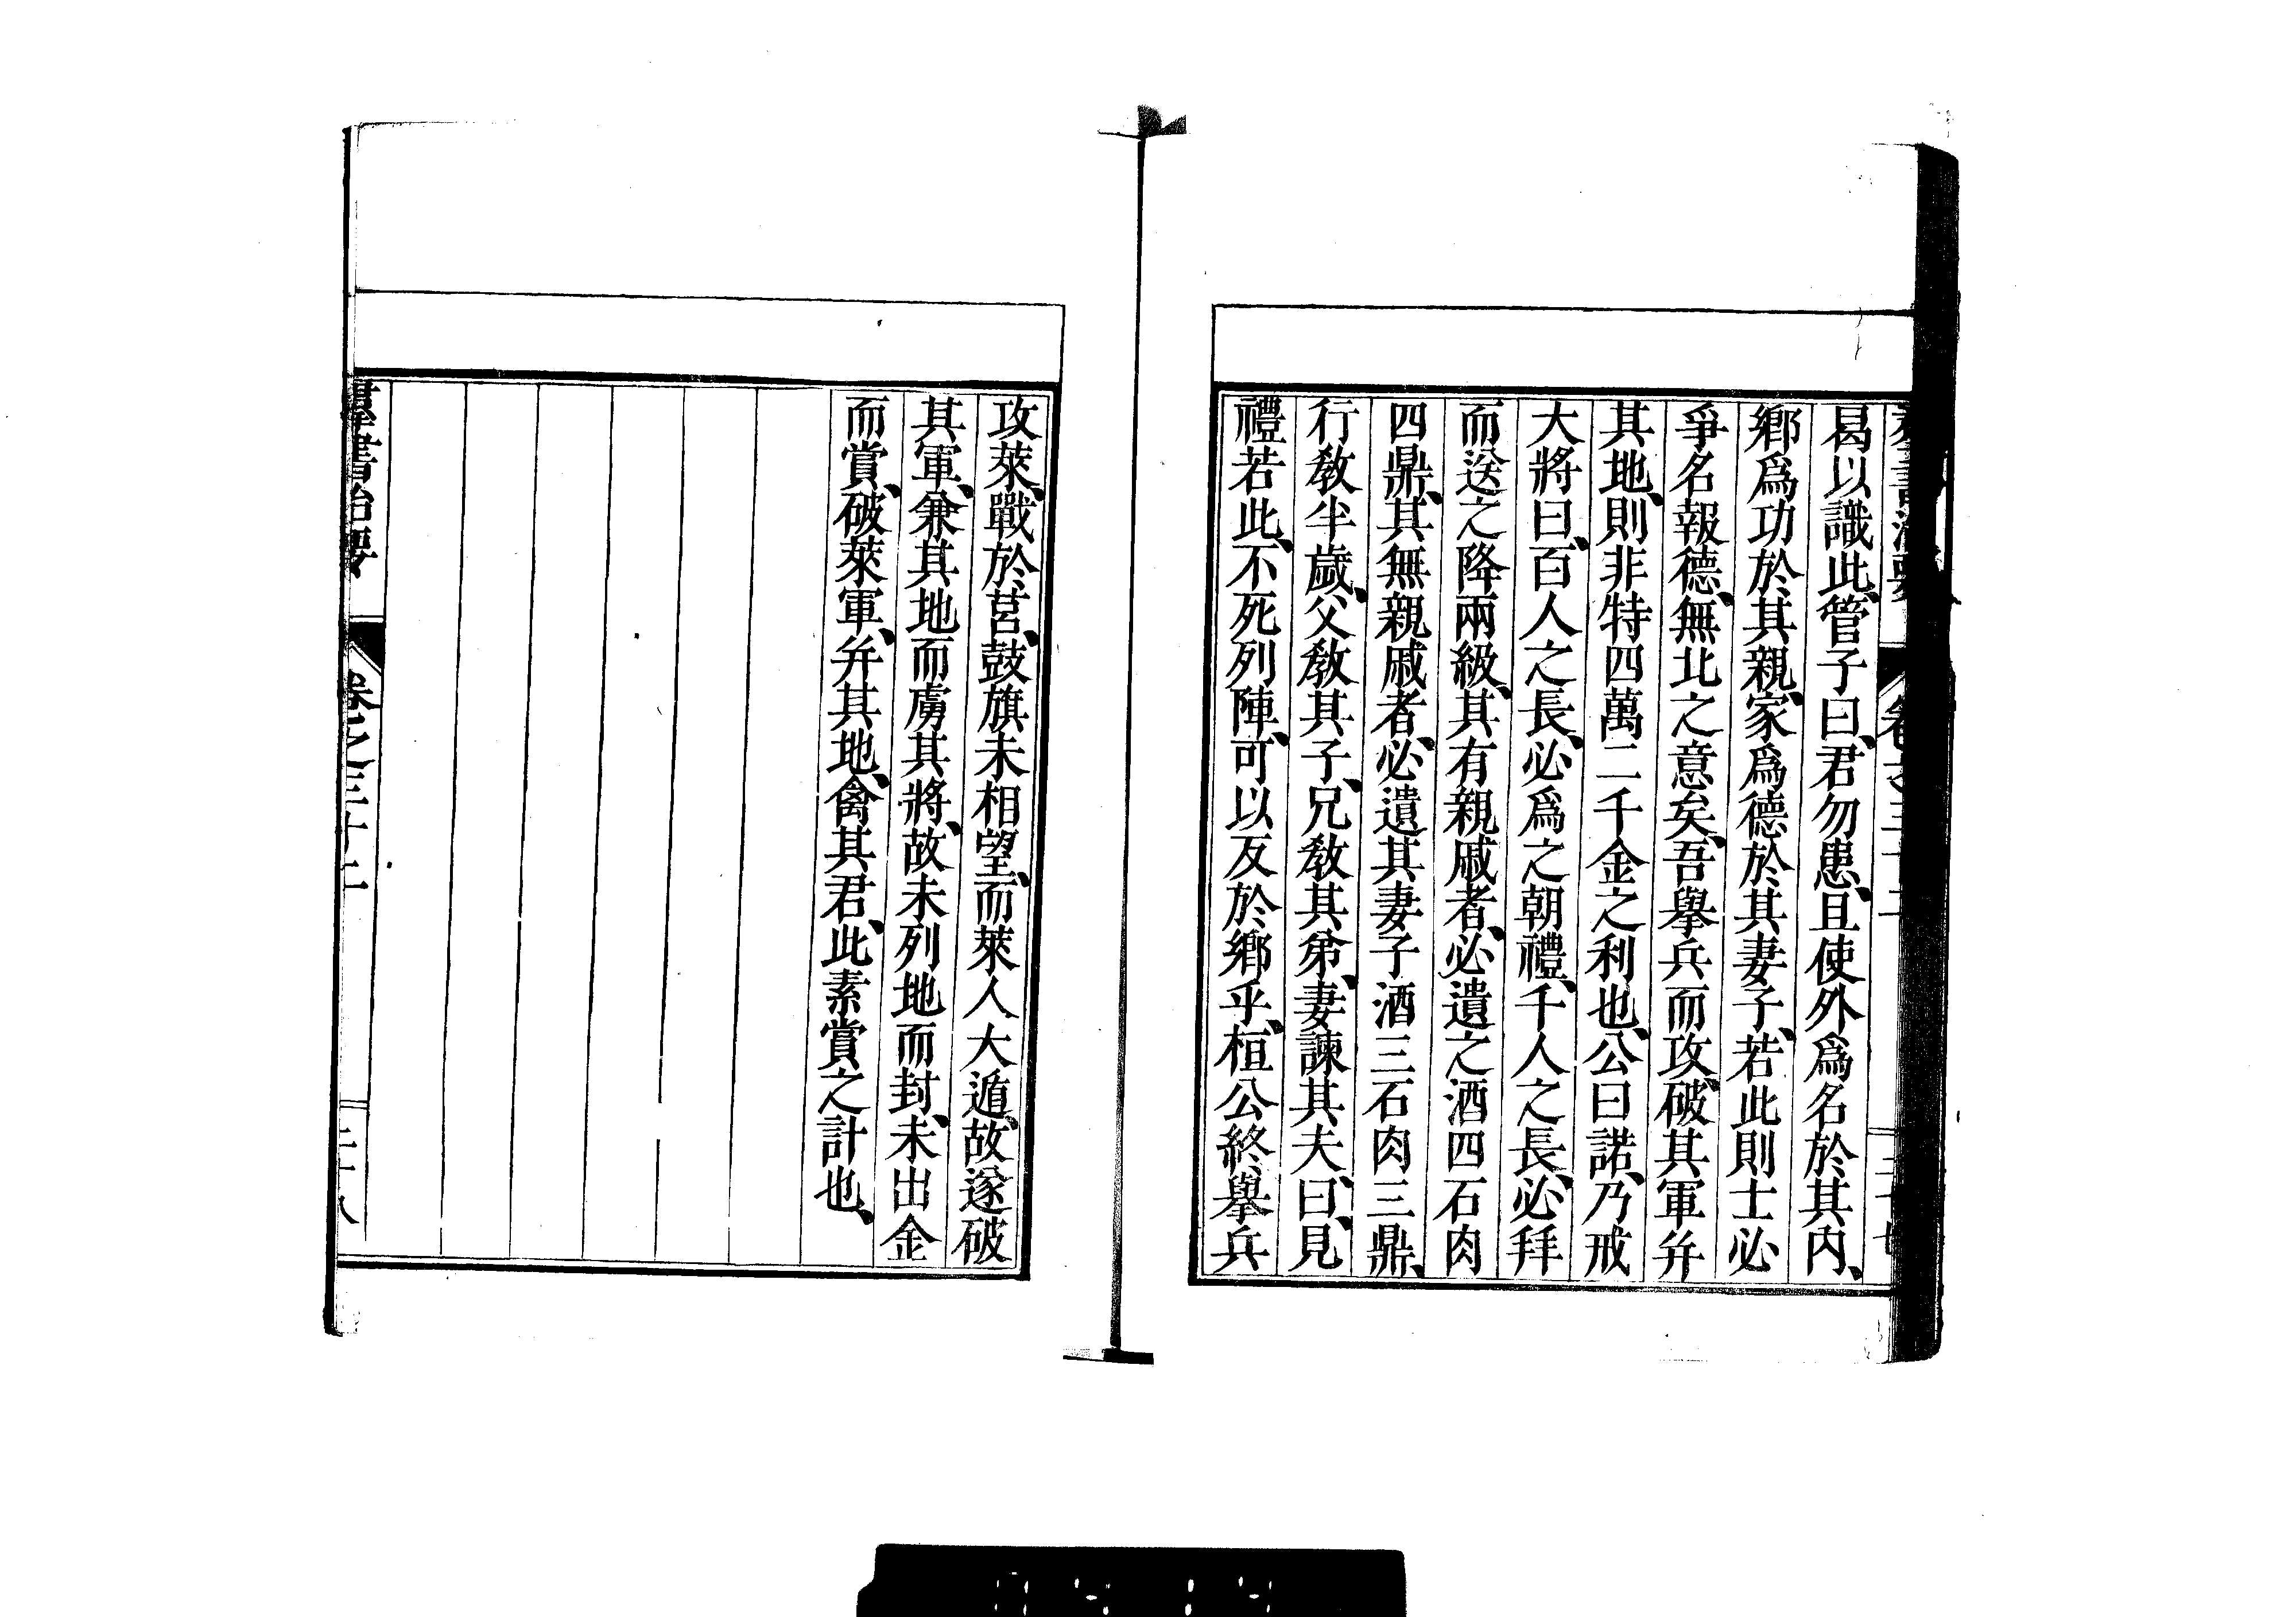 曷以識此、管子曰、君勿患、且使外爲名於其內、
鄉爲功於其親、家爲德於其妻子、若此則士必
爭名報德、無北之意矣、吾擧兵而攻、破其軍、并
其地、則非特四萬二千金之利也、公曰諾、乃戒
大將曰、百人之長、必爲之朝禮、千人之長、必拜
而送之降兩級、其有親戚者、必遺之酒四石肉
四鼎、其無親戚者、必遺其妻子酒三石肉三鼎、
行敎半歲、父敎其子、兄敎其弟、妻諫其夫、曰、見
禮若此、不死列陣、可以反於鄉乎、桓公終擧兵
攻萊、戰於莒、鼓旗未相望、而萊人大遁、故遂破
其軍、兼其地而虜其將、故未列地而封、未出金
而賞、破萊軍、并其地、禽其君、此素賞之計也、
群書治要
卷之三十二
三十八